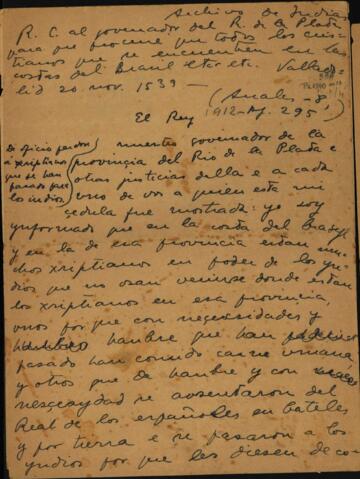 Archivo de Indias
R. C. al governador del R. de la Plata
para que procure que todos los cris-
tianos que se encuentren en las
costas del Brasil etc etc. Vallado-
lid 20 nov. 1539 —
(Anales - 8º
1912 - pg. 295)
El Rey
De oficio perdon
a xriptianos
que se han
pasado por
los indios
nuestro governador de la
provincia del Rio de la Plata e
otras justicias della e a cada
uno de vos a quien esta mi
çedula fue mostrada: yo soy
ynformado que en la costa del brasyl
y en la de esa provincia estan mu-
chos xriptianos en poder de los yn-
dios que no osan venirse donde estan
los xriptianos en esa provincia,
unos por que con necesidades y
hambre que han
pasado han comido carne umana
y otros que de hambre y con
nesçesydad se avsentaron del
Real de los españoles en bateles
y por tierra e se pasaron a los
yndios por que les diesen de co-